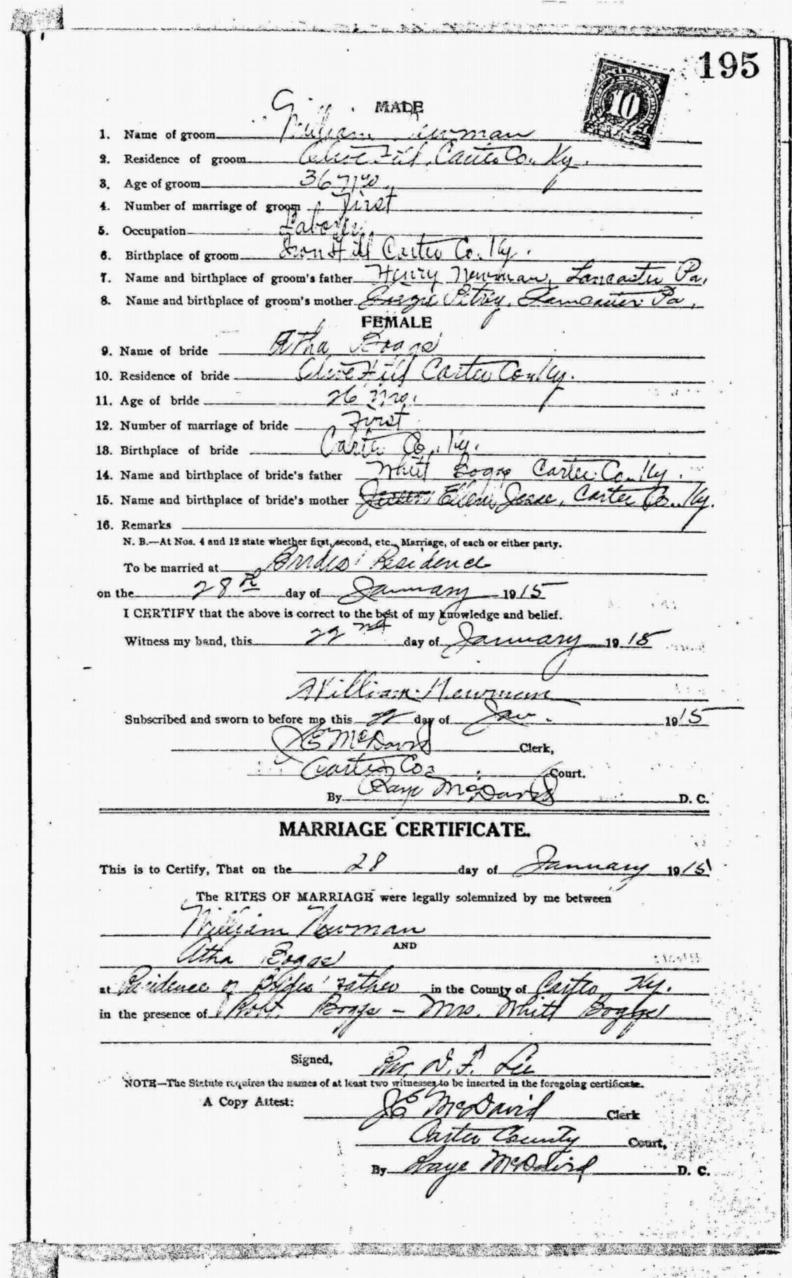 195
10
MADE
1. Name of groom William Newman
2. Residence of groom Olive Hill, Carter Co. Ky.
3. Age of groom 36 yrs.
4. Number of marriage of groom First
5. Occupation Laborer.
6. Birthplace of groom Iron Hill Carter Co. Ky.
7. Name and birthplace of groom's father Henry Newman, Lancaster Pa,
8. Name and birthplace of groom's mother Petry, Lancaster Pa,
FEMALE
9. Name of bride Atha Boggs
10. Residence of bride Olive Hill Carter Co. Ky.
11. Age of bride 26 yrs.
12. Number of marriage of bride First
13. Birthplace of bride Carter Co. Ky.
14. Name and birthplace of bride's father Whitt Boggs Carter Co. Ky.
15. Name and birthplace of bride's mother Ellen, Carter Co. Ky.
16. Remarks
N. B.—At Nos. 4 and 12 state whether first, second, etc., Marriage, of each or either party.
To be married at Brides' Residence
on the 28th day of January 1915
I CERTIFY that the above is correct to the best of my knowledge and belief.
Witness my hand, this 22nd day of January 1915
William Newman
Subscribed and sworn to before me this 22 day of Jan. 1915
J E McDavid Clerk,
Carter Co. Court.
By McDavid D. C.
MARRIAGE CERTIFICATE.
This is to Certify, That on the 28 day of January 1915
The RITES OF MARRIAGE were legally solemnized by me between
William Newman
AND
Atha Boggs
at Residence of Brides' Father in the County of Carter Ky.
in the presence of Robt. Boggs – Mrs. Whitt Boggs
Signed, Rev. D. F. Lee
NOTE—The Statute requires the names of at least two witnesses to be inserted in the foregoing certificate.
A Copy Attest: J E McDavid Clerk
Carter County Court,
By McDavid D. C.